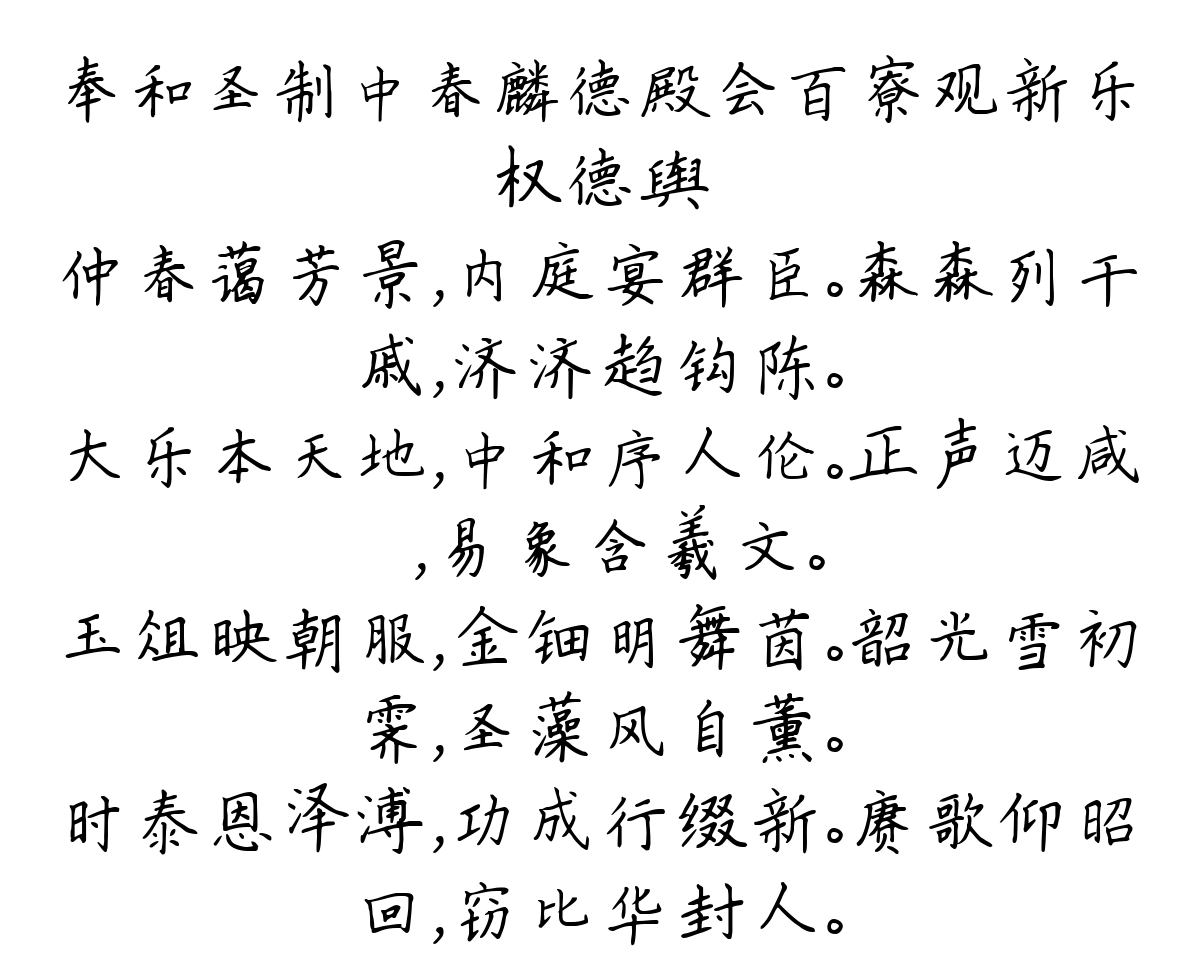 奉和圣制中春麟德殿会百寮观新乐
权德舆
仲春蔼芳景,内庭宴群臣。森森列干
戚,济济趋钩陈。
大乐本天地,中和序人伦。正声迈咸
,易象含羲文。
玉俎映朝服,金钿明舞茵。韶光雪初
霁,圣藻风自薰。
时泰恩泽溥,功成行缀新。赓歌仰昭
回,窃比华封人。